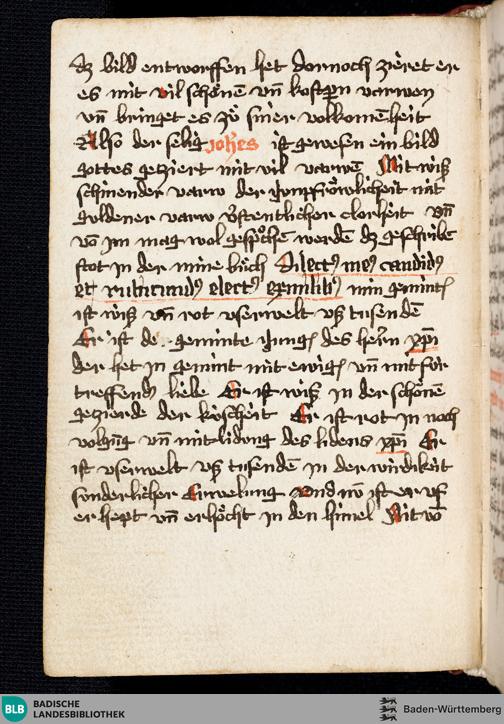 dz bild entworffen het dornoch zieret er
es mit vil schönē vn̄ kostpn varwen
vn̄ bringet es zů siner volkomēheit
Also der selig johēs ist gewesen ein bild
gottes geziert mit vil varwē Mit wiß
schinender varw der junpfröwlicheit mit
guldener varw offentlicher clorheit vn̄
vō jm mag wol gespochen werdē dz geschribē
stot in der mine bůch Dilectꝰ meꝰ candidꝰ
et rubicundꝰ electꝰ ex milibꝰ min gemint
ist wiß vn̄ rot vserwelt vß tusendē
Er ist de geminte jung des herrn xpī
der het in gemint mit ewig vn̄ mit für
treffend liebe Er ist wiß in der schönē
gezierde der küscheit Er ist rot in noch
volgūg vn̄ mitlidūg des lidens xpī Er
ist vserwelt vß tusendē in der wirdikeit
sonderlicher Erwelung vnd nō ist er vf
er hept vn̄ erhöcht in den himel Mit wō
BLB
BADISCHE
LANDESBIBLIOTHEK
Baden-Württemberg